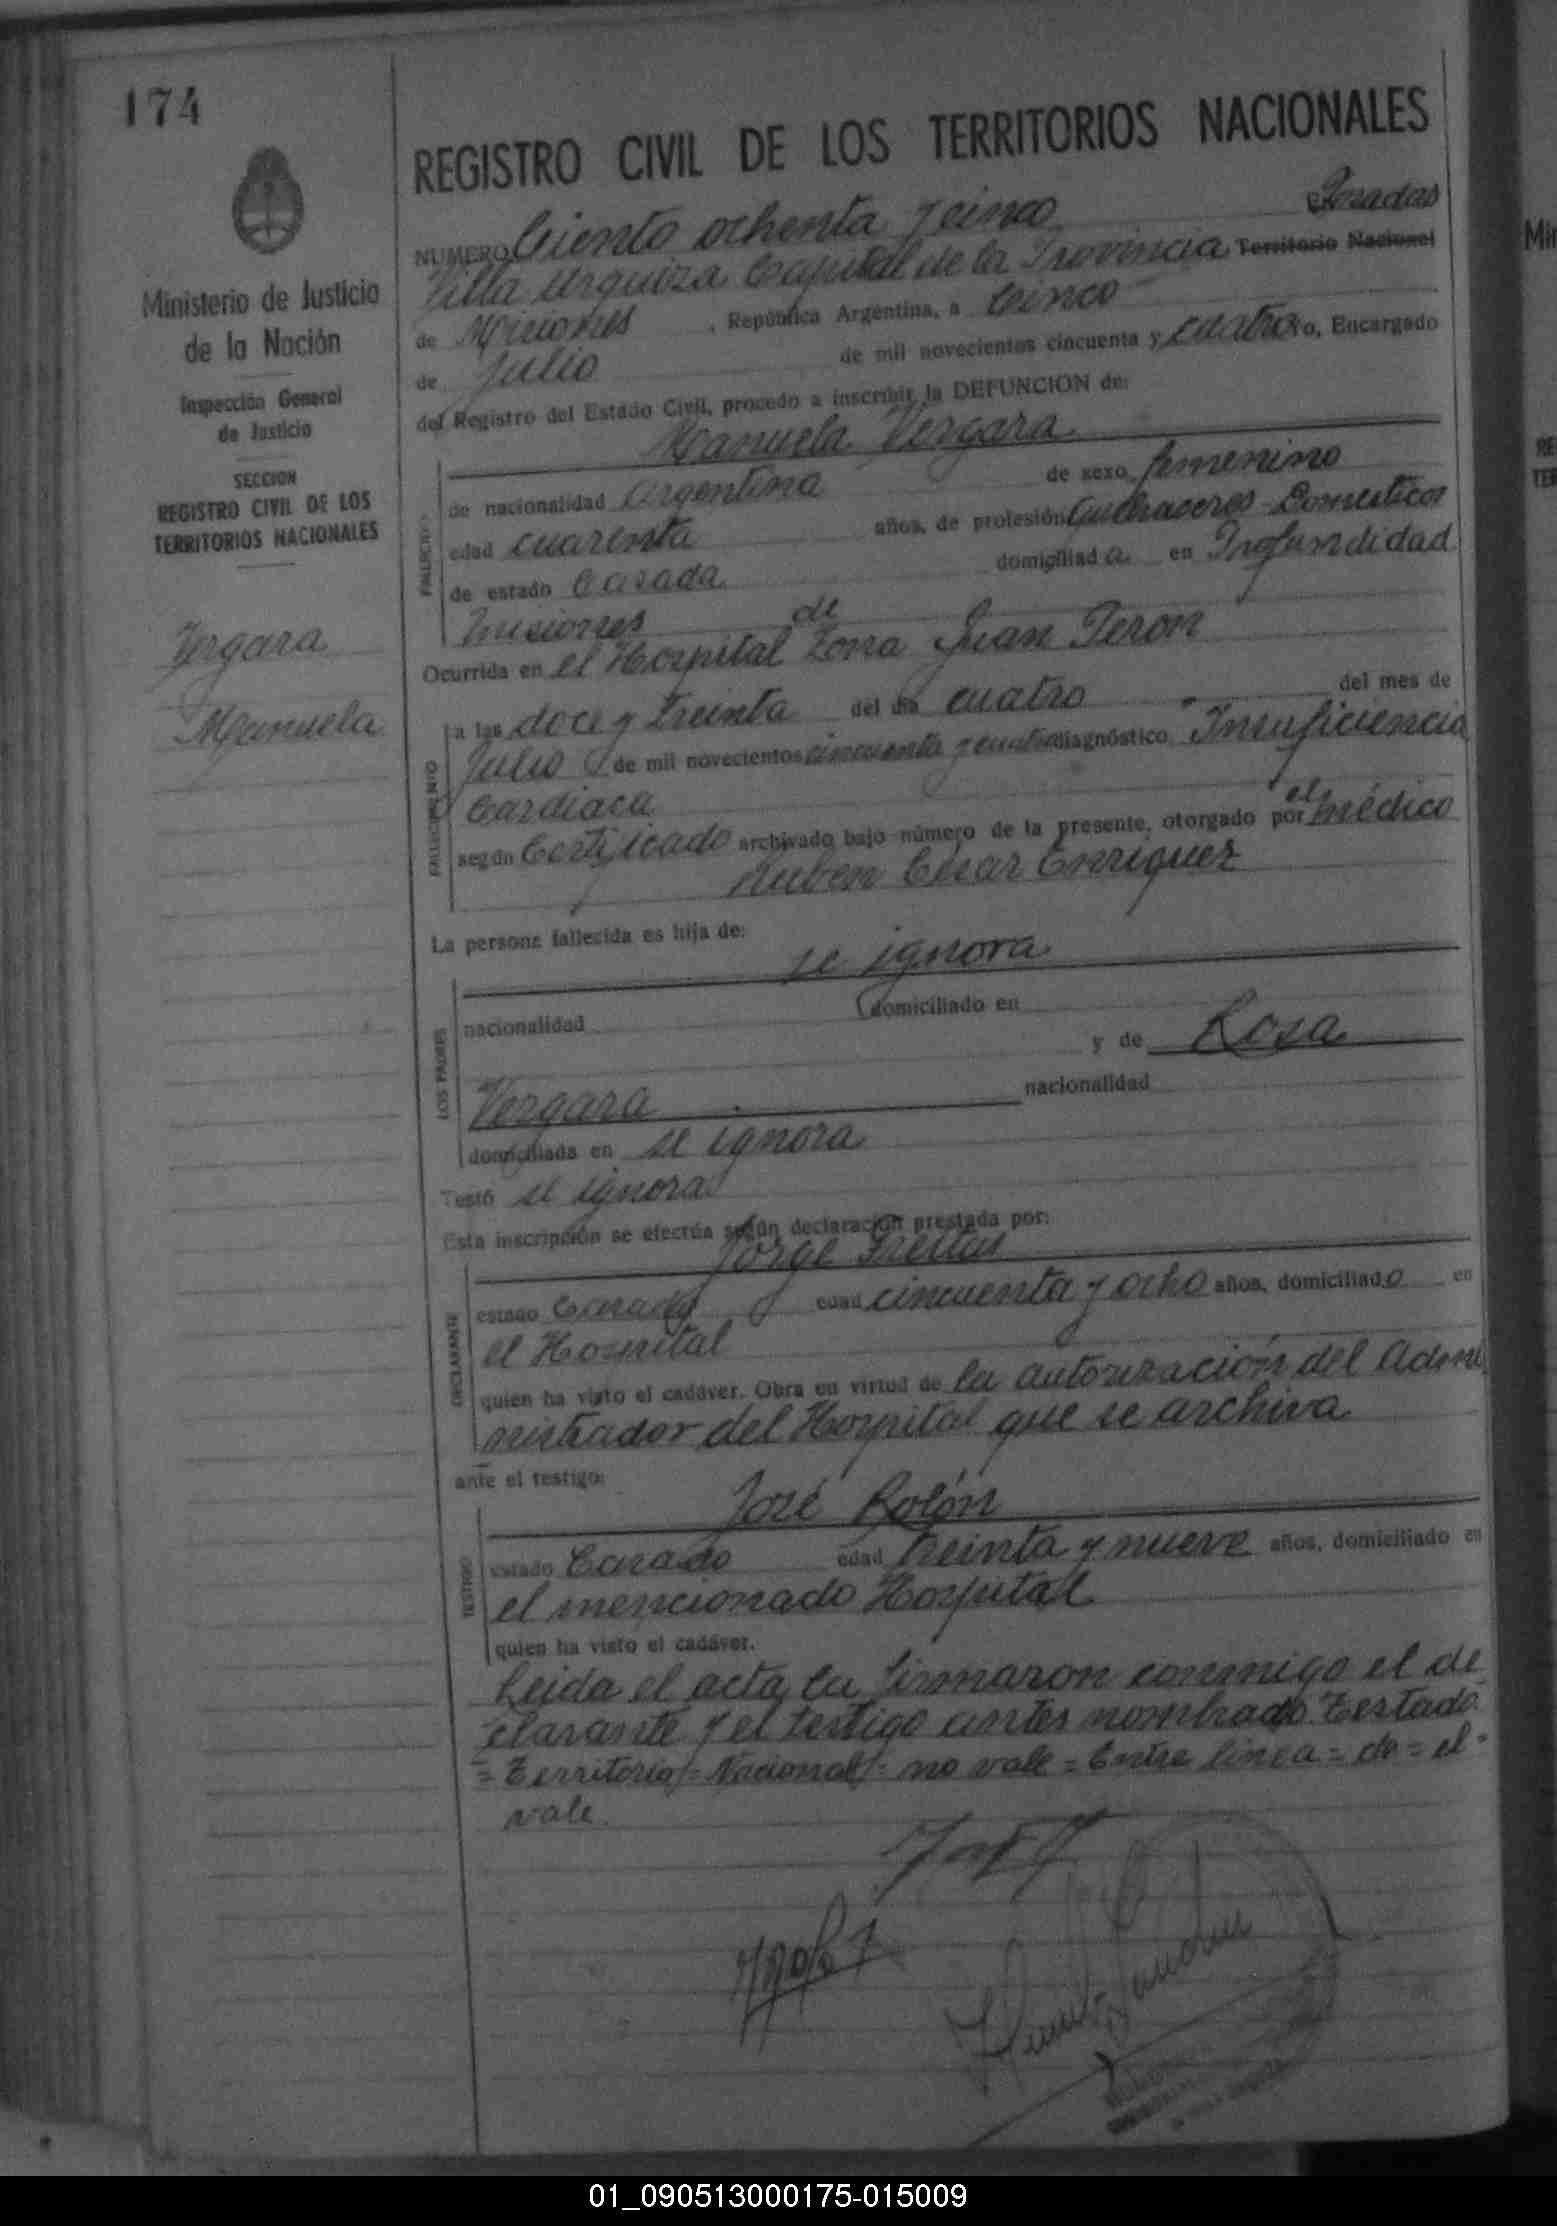 174
REGISTRO CIVIL DE LOS TERRITORIOS NACIONALES
Ministerio de Justicia
de la Nación
Inspección General
de Justicia
SECCION
REGISTRO CIVIL DE LOS
TERRITORIOS NACIONALES
Vergara
Manuela
NUMERO Ciento ochenta y cinco Posadas
Villa Urquiza Capital de la Provincia Territorio Nacional
de Misiones, República Argentina, a Cinco
de Julio de mil novecientos cincuenta y cuatro yo, Encargado
del Registro del Estado Civil, procedo a inscribir la DEFUNCION de:
Manuela Vergara
FALLECIDO
de nacionalidad argentina de sexo femenino
edad cuarenta años, de profesión Quehaceres Domesticos
de estado Casada domiciliada en Profundidad
Misiones
Ocurrida en el Hospital de Zona Juan Peron
FALLECIMIENTO
a las doce y treinta del día cuatro del mes de
Julio de mil novecientos cincuenta y cuatro diagnóstico, Insuficiencia
Cardiaca
según Certificado archivado bajo número de la presente, otorgado por el médico
Ruben Cesar Enriquez
La persona fallecida es hija de:
se ignora
LOS PADRES
nacionalidad domiciliado en
y de Rosa
Vergara nacionalidad
domiciliada en se ignora
Testó se ignora
Esta inscripción se efectúa según declaración prestada por:
Jorge Freitas
DECLARANTE
estado Casado edad cincuenta y ocho años, domiciliado en
el Hospital
quien ha visto el cadáver. Obra en virtud de la autorización del Admi
nistrador del Hospital que se archiva
ante el testigo:
José Rolón
TESTIGO
estado Casado edad treinta y nueve años, domiciliado en
el mencionado Hospital
quien ha visto el cadáver.
Leida el acta la firmaron conmigo el de
clarante y el testigo antes nombrado. Testado:
= Territorio = Nacional = no vale = Entre linea = de = el =
vale.
01_090513000175-015009